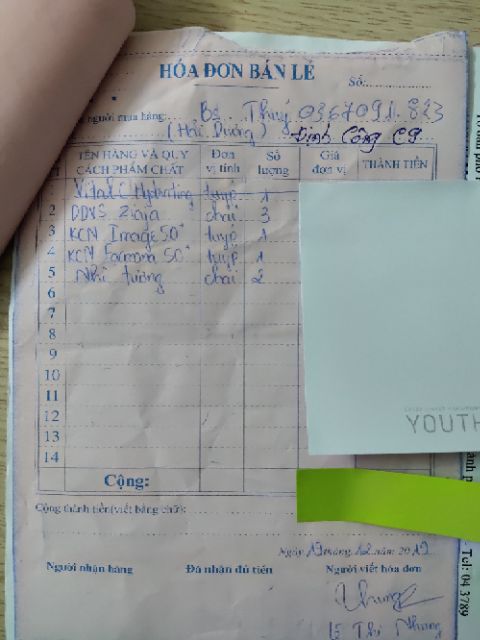 HÓA ĐƠN BÁN LẺ
Số:
người mua hàng: Bs Thuý 0367091.823
(Hải Dương) Định Công C9
TÊN HÀNG VÀ QUY CÁCH PHẨM CHẤT Đơn vị tính Số lượng Giá đơn vị THÀNH TIỀN
1 Vital C Hydrating tuýp 1
2 DDVS Ziaja chai 3
3 KCN Image 50+ tuýp 1
4 KCN Farmona 50+ tuýp 1
5 Nhũ tương chai 2
6
7
8
9
10
11
12
13
14
Cộng:
YOUTH
Cộng thành tiền(viết bằng chữ):
Ngày 19 tháng 12 năm 2019
Người nhận hàng Đã nhận đủ tiền Người viết hóa đơn
Nhung
Lê Thị Nhung
Tel: 04 3789